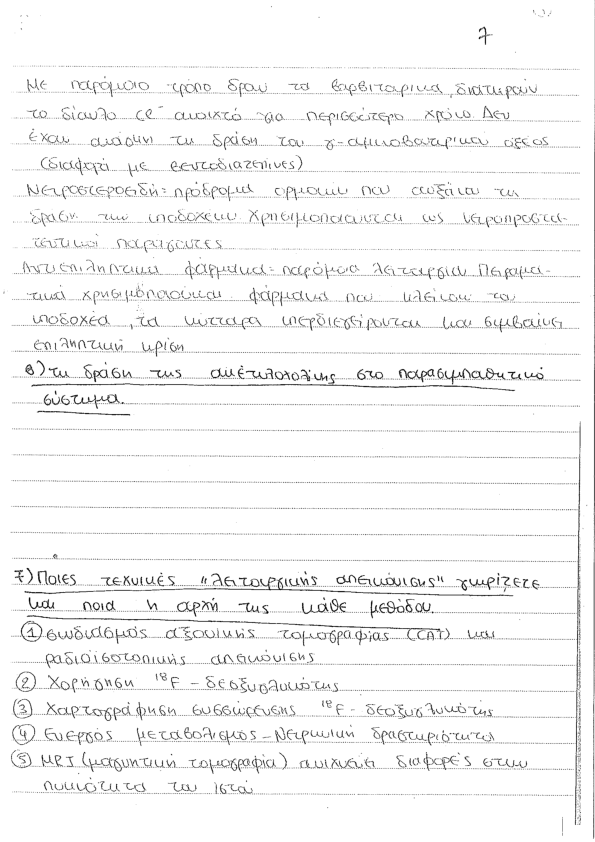 7
Με παρόμοιο τρόπο δρουν τα βαρβιταρικα, διατηρούν
το δίαυλο Cl⁻ ανοιχτό για περισσότερο χρόνο. Δεν
έχουν ανάγκη τη δράση του γ-αμινοβουτυρικού οξέος
(διαφορά με βενζοδιαζεπίνες)
Νευροστεροειδή = πρόδρομα ορμονών που αυξάνουν τη
δράση των υποδοχέων. Χρησιμοποιούνται ως νευροπροστα-
τευτικοί παράγοντες
Αντιεπιληπτικά φάρμακα = παρόμοια λειτουργία. Πειραμα-
τικά χρησιμοποιούνται φάρμακα που κλείνουν τον
υποδοχέα, τα κύτταρα υπερδιεγείρονται και συμβαίνει
επιληπτική κρίση
θ) τη δράση της ακετυλοχολίνης στο παρασυμπαθητικό
σύστημα.
7) Ποιες τεχνικές "λειτουργικής απεικόνισης" γνωρίζετε
και ποια η αρχή της κάθε μεθόδου.
① Συνδιασμός αξονικής τομογραφίας (CAT) και
ραδιοϊσοτοπικής απεικόνισης
② Χορήγηση ¹⁸F - δεοξυγλυκόζης
③ Χαρτογράφηση συσσώρευσης ¹⁸F - δεοξυγλυκόζης
④ Ενεργός μεταβολισμός - Νευρωνική δραστηριότητα
⑤ MRI (μαγνητική τομογραφία) ανιχνεύει διαφορές στην
πυκνότητα του ιστού